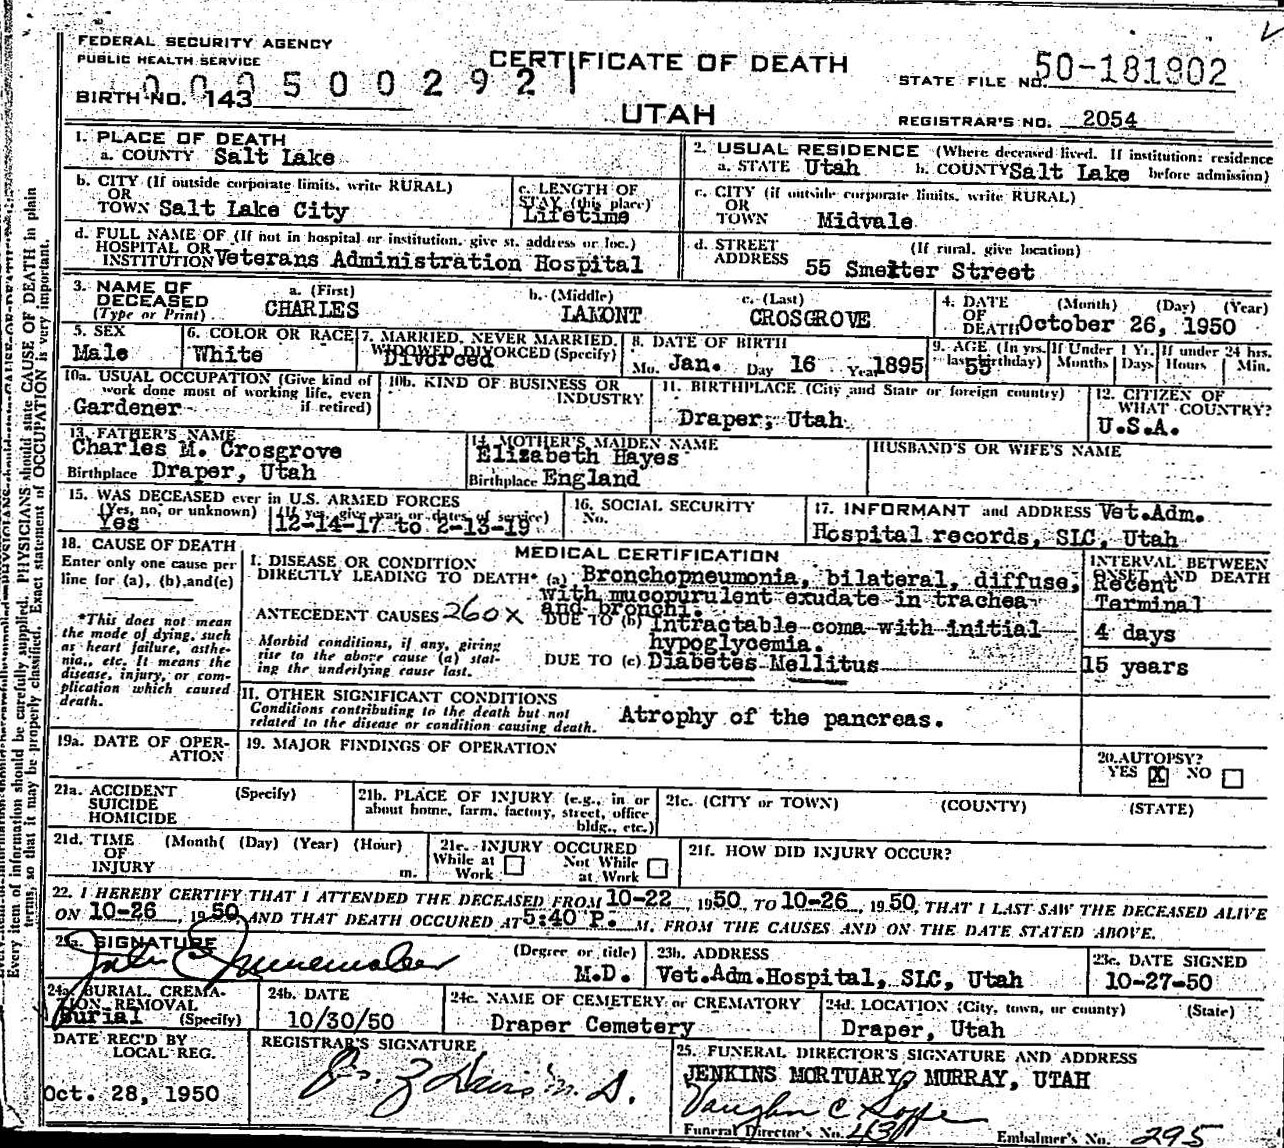 FEDERAL SECURITY AGENCY
PUBLIC HEALTH SERVICE
CERTIFICATE OF DEATH
UTAH
STATE FILE NO. 50-181802
REGISTRAR'S NO. 2054
0 0 0 5 0 0 2 9 2 1
BIRTH NO. 143
1. PLACE OF DEATH
a. COUNTY Salt Lake
2. USUAL RESIDENCE (Where deceased lived. If institution: residence before admission)
a. STATE Utah b. COUNTY Salt Lake
b. CITY (If outside corporate limits, write RURAL)
OR
TOWN Salt Lake City
c. LENGTH OF
STAY (this place)
Lifetime
c. CITY (if outside corporate limits, write RURAL)
OR
TOWN Midvale
d. FULL NAME OF (If not in hospital or institution, give st. address or loc.)
HOSPITAL OR
INSTITUTION Veterans Administration Hospital
d. STREET (If rural, give location)
ADDRESS 55 Smelter Street
3. NAME OF
DECEASED
(Type or Print)
a. (First)
CHARLES
b. (Middle)
LAMONT
c. (Last)
CROSGROVE
4. DATE (Month) (Day) (Year)
OF
DEATH October 26, 1950
5. SEX
Male
6. COLOR OR RACE
White
7. MARRIED, NEVER MARRIED,
WIDOWED DIVORCED (Specify)
Divorced
8. DATE OF BIRTH
Mo. Jan. Day 16 Year 1895
9. AGE (In yrs. last birthday)
55
If Under 1 Yr.
Months Days
If under 24 hrs.
Hours Min.
10a. USUAL OCCUPATION (Give kind of
work done most of working life, even
if retired)
Gardener
10b. KIND OF BUSINESS OR
INDUSTRY
11. BIRTHPLACE (City and State or foreign country)
Draper, Utah
12. CITIZEN OF
WHAT COUNTRY?
U.S.A.
13. FATHER'S NAME
Charles M. Crosgrove
Birthplace Draper, Utah
14. MOTHER'S MAIDEN NAME
Elizabeth Hayes
Birthplace England
HUSBAND'S OR WIFE'S NAME
15. WAS DECEASED ever in U.S. ARMED FORCES
(Yes, no, or unknown) (If yes, give war or dates of service)
Yes 12-14-17 to 2-13-19
16. SOCIAL SECURITY
No.
17. INFORMANT and ADDRESS Vet.Adm.
Hospital records, SLC, Utah
18. CAUSE OF DEATH
Enter only one cause per
line for (a), (b), and (c)
*This does not mean
the mode of dying, such
as heart failure, asthe-
nia, etc. It means the
disease, injury, or com-
plication which caused
death.
MEDICAL CERTIFICATION
I. DISEASE OR CONDITION
DIRECTLY LEADING TO DEATH* (a) Bronchopneumonia, bilateral, diffuse,
with mucopurulent exudate in trachea
and bronchi.
ANTECEDENT CAUSES 260X DUE TO (b) Intractable coma with initial
hypoglycemia.
Morbid conditions, if any, giving
rise to the above cause (a) stat-
ing the underlying cause last.
DUE TO (c) Diabetes Mellitus
INTERVAL BETWEEN
ONSET AND DEATH
Recent
Terminal
4 days
15 years
II. OTHER SIGNIFICANT CONDITIONS
Conditions contributing to the death but not
related to the disease or condition causing death.
Atrophy of the pancreas.
19a. DATE OF OPER-
ATION
19. MAJOR FINDINGS OF OPERATION
20. AUTOPSY?
YES X NO
21a. ACCIDENT (Specify)
SUICIDE
HOMICIDE
21b. PLACE OF INJURY (e.g., in or
about home, farm, factory, street, office
bldg., etc.)
21c. (CITY or TOWN) (COUNTY) (STATE)
21d. TIME (Month( (Day) (Year) (Hour)
OF
INJURY m.
21e. INJURY OCCURED
While at Work Not While at Work
21f. HOW DID INJURY OCCUR?
22. I HEREBY CERTIFY THAT I ATTENDED THE DECEASED FROM 10-22, 1950, TO 10-26, 1950, THAT I LAST SAW THE DECEASED ALIVE
ON 10-26, 1950, AND THAT DEATH OCCURED AT 5:40 P. M, FROM THE CAUSES AND ON THE DATE STATED ABOVE.
23a. SIGNATURE (Degree or title)
M.D.
23b. ADDRESS
Vet.Adm.Hospital, SLC, Utah
23c. DATE SIGNED
10-27-50
24a. BURIAL, CREMA-
TION, REMOVAL
Burial (Specify)
24b. DATE
10/30/50
24c. NAME OF CEMETERY or CREMATORY
Draper Cemetery
24d. LOCATION (City, town, or county) (State)
Draper, Utah
DATE REC'D BY
LOCAL REG.
Oct. 28, 1950
REGISTRAR'S SIGNATURE
25. FUNERAL DIRECTOR'S SIGNATURE AND ADDRESS
JENKINS MORTUARY, MURRAY, UTAH
Funeral Director's No. Embalmer's No. 295
Every item of information should be carefully supplied. PHYSICIANS should state CAUSE OF DEATH in plain
terms, so that it may be properly classified. Exact statement of OCCUPATION is very important.